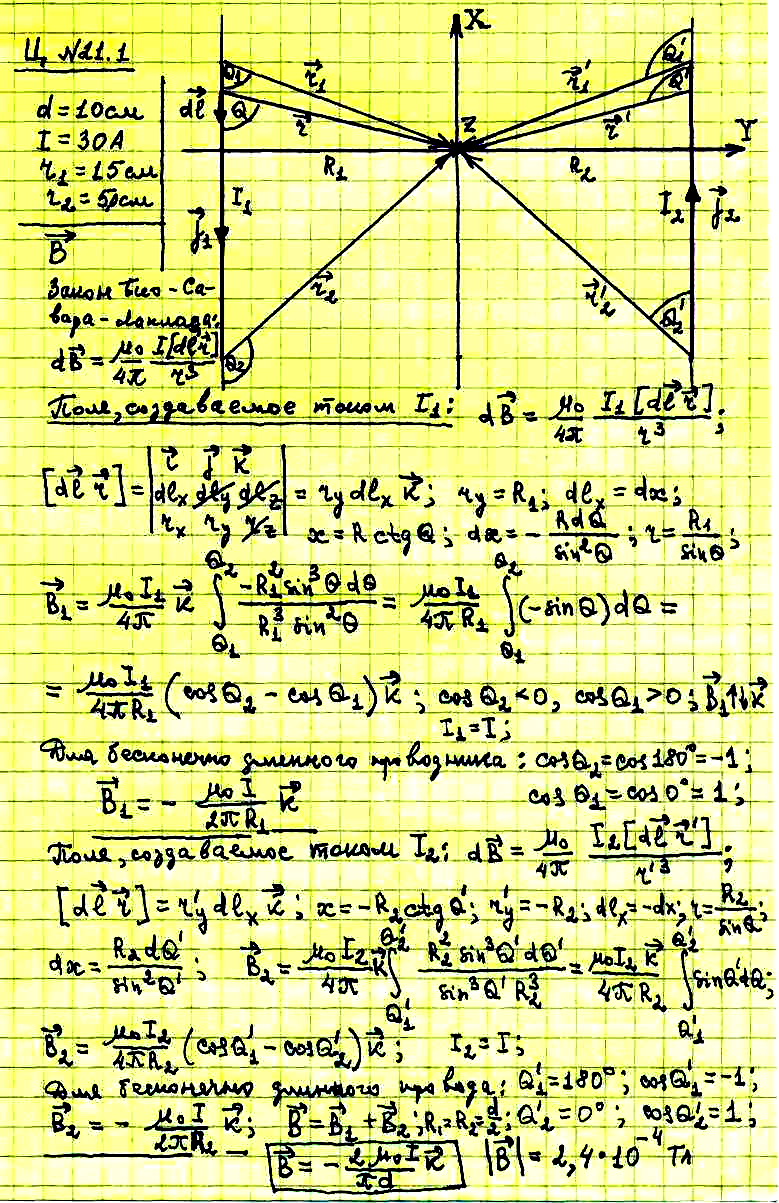 Ц №11.1
d = 10 см
I = 30 А
r₁ = 15 см
r₂ = 5 см
B⃗
X
Y
Z
Q₁
r⃗₁
dl⃗
Q
r⃗
R₁
I₁
j⃗₁
r⃗₂
Q₂
Q₁′
r⃗₁′
Q′
r⃗′
R₂
I₂
j⃗₂
r⃗₂′
Q₂′
Закон Био-Са-
вара-Лапласа:
dB⃗ = μ₀/4π I[dl⃗ r⃗]/r³
Поле, создаваемое током I₁: dB⃗ = μ₀/4π I₁[dl⃗ r⃗]/r³;
[dl⃗ r⃗] = |i⃗ j⃗ k⃗; dlₓ dl_y dl_z; rₓ r_y r_z| = r_y dlₓ k⃗; r_y = R₁; dlₓ = dx;
x = R ctg Q; dx = - R dQ/sin²Q; r = R₁/sinθ;
B⃗₁ = μ₀I₁/4π k⃗ ∫_{Q₁}^{Q₂} -R₁² sin³θ dθ/R₁³ sin²θ = μ₀I₁/4πR₁ ∫_{Q₁}^{Q₂} (-sin Q) dQ =
= μ₀I₁/4πR₁ (cos Q₂ - cos Q₁) k⃗; cos Q₂ < 0, cos Q₁ > 0; B⃗₁↑↓k⃗
I₁ = I;
Для бесконечно длинного проводника: cos Q₂ = cos 180° = -1;
B⃗₁ = - μ₀I/2πR₁ k⃗ cos θ₁ = cos 0° = 1;
Поле, создаваемое током I₂: dB⃗ = μ₀/4π I₂[dl⃗ r⃗′]/r′³;
[dl⃗ r⃗] = r′_y dlₓ k⃗; x = -R₂ ctg Q′; r′_y = -R₂; dlₓ = -dx; r = R₂/sin Q′;
dx = R₂ dQ′/sin²Q′; B⃗₂ = μ₀I₂/4π k⃗ ∫_{Q₁′}^{Q₂′} R₂² sin³Q′ dQ′/sin³Q′ R₂³ = μ₀I₂ k⃗/4πR₂ ∫_{Q₁′}^{Q₂′} sin Q′ dQ;
B⃗₂ = μ₀I₂/4πR₂ (cos Q₁′ - cos Q₂′) k⃗; I₂ = I;
Для бесконечно длинного провода: Q₁′ = 180°; cos Q₁′ = -1;
B⃗₂ = - μ₀I/2πR₂ k⃗; B⃗ = B⃗₁ + B⃗₂; R₁ = R₂ = d/2; Q₂′ = 0°; cos Q₂′ = 1;
B⃗ = - 2μ₀I/πd k⃗ |B⃗| = 2,4·10⁻⁴ Тл